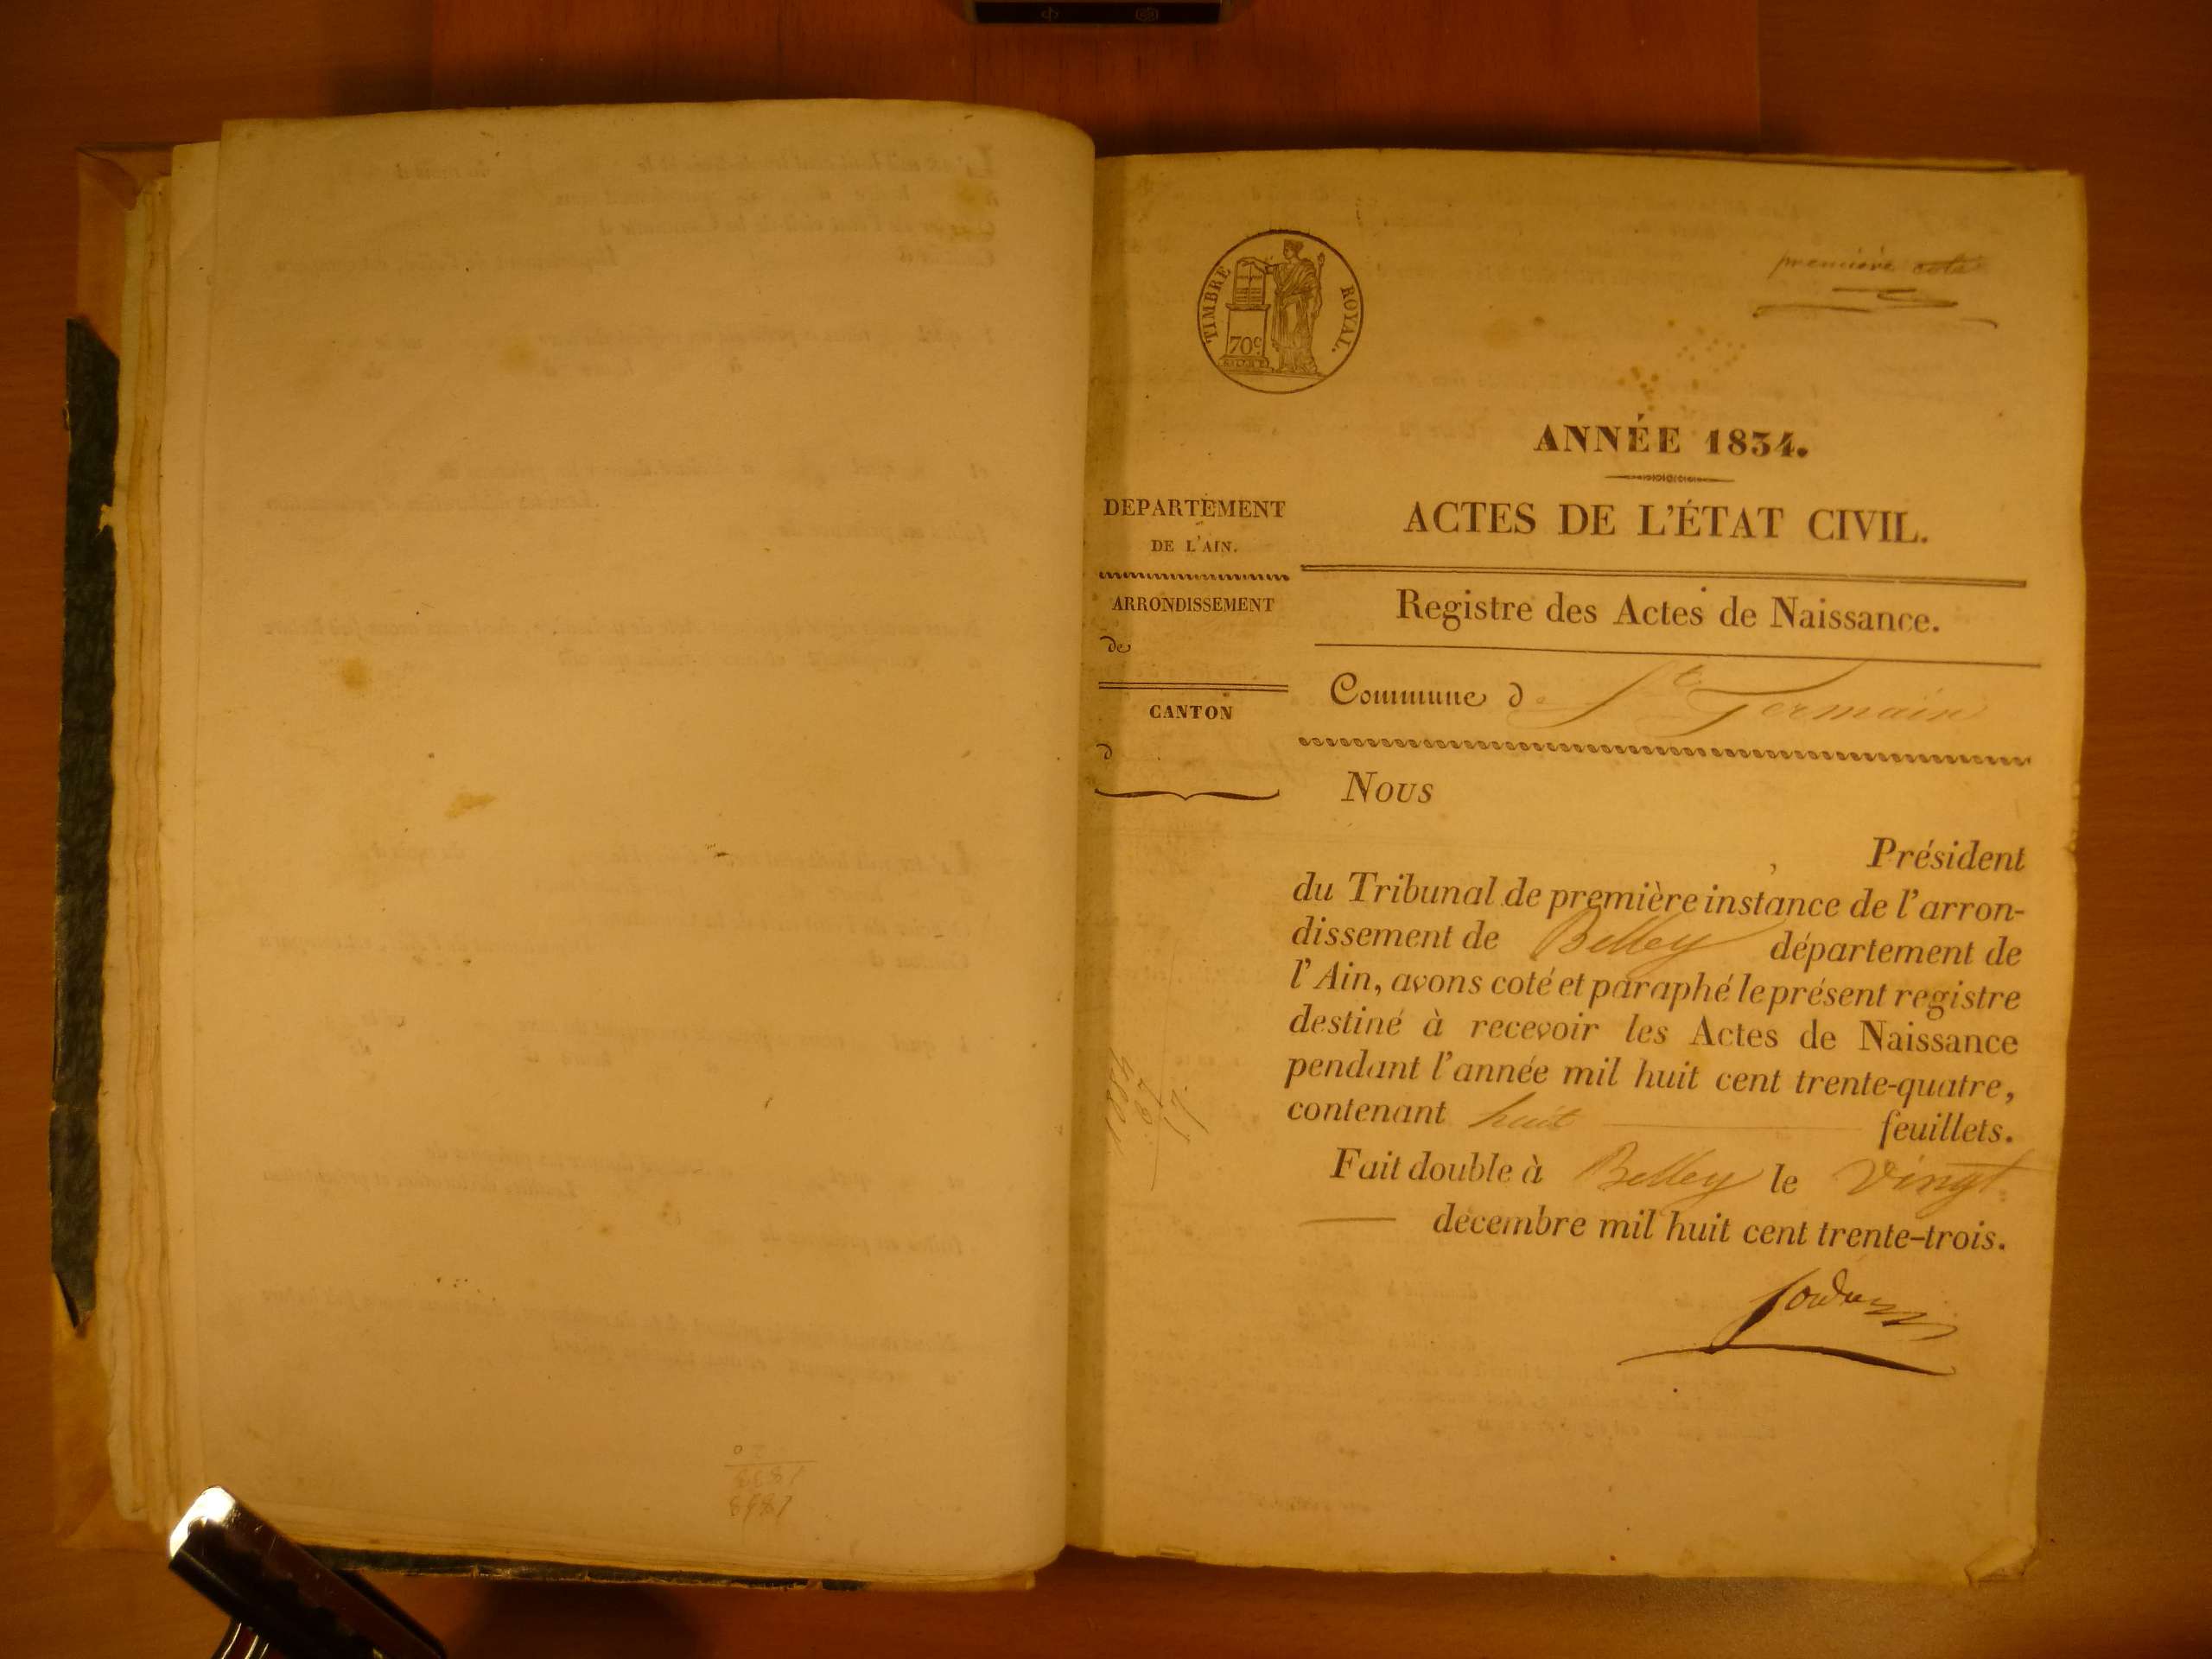 première cote
TIMBRE ROYAL.
70c
ANNÉE 1834.
ACTES DE L'ÉTAT CIVIL.
DEPARTEMENT
DE L'AIN.
ARRONDISSEMENT
de
CANTON
d
Registre des Actes de Naissance.
Commune de St Germain
Nous
, Président
du Tribunal de première instance de l'arron-
dissement de Belley département de
l'Ain, avons coté et paraphé le présent registre
destiné à recevoir les Actes de Naissance
pendant l'année mil huit cent trente-quatre,
contenant huit feuillets.
Fait double à Belley le vingt
décembre mil huit cent trente-trois.